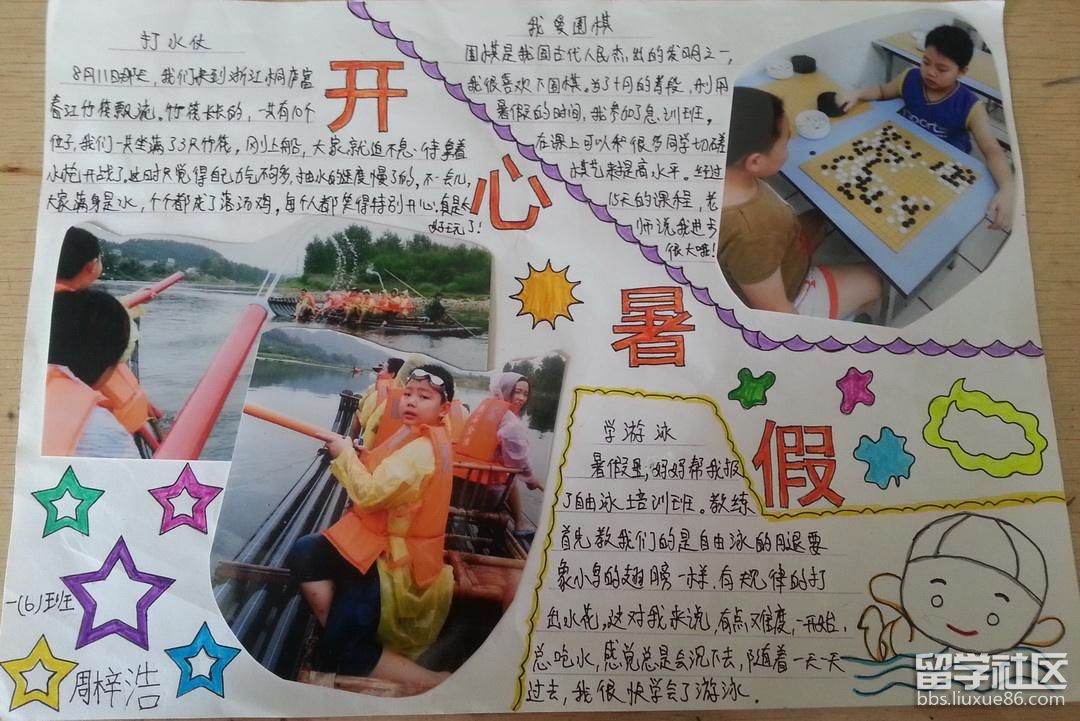 打水仗
8月11日那天，我们来到浙江桐庐富
春江竹筏飘流。竹筏长长的，一共有10个
位子，我们一共坐满了3只竹筏，刚上船，大家就迫不急待拿着
水炮开战了。这时只觉得自己力气不够多，抽水的速度慢了的。不一会儿，
大家满身是水，个个都成了落汤鸡，每个人都笑得特别开心，真是太
好玩了！
我爱围棋
围棋是我国古代人民杰出的发明之一，
我很喜欢下围棋。为了十月的考段，利用
暑假的时间，我参加了急训班。
在课上可以和很多同学切磋
棋艺来提高水平。经过
15天的课程，老
师说我进步
很大哦！
开心暑假
学游泳
暑假里，好好帮我报
了自由泳培训班。教练
首先教我们的是自由泳的月退要
象小鸟的翅膀一样，有规律的打
出水花，这对我来说，有点难度，一开始，
总吃水，感觉总是会沉下去，随着一天一天
过去，我很快学会了游泳．
一(6)班
周梓浩
留学社区
bbs.liuxue86.com